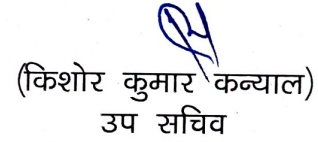 (किशोर कुमार कन्याल)
उप सचिव